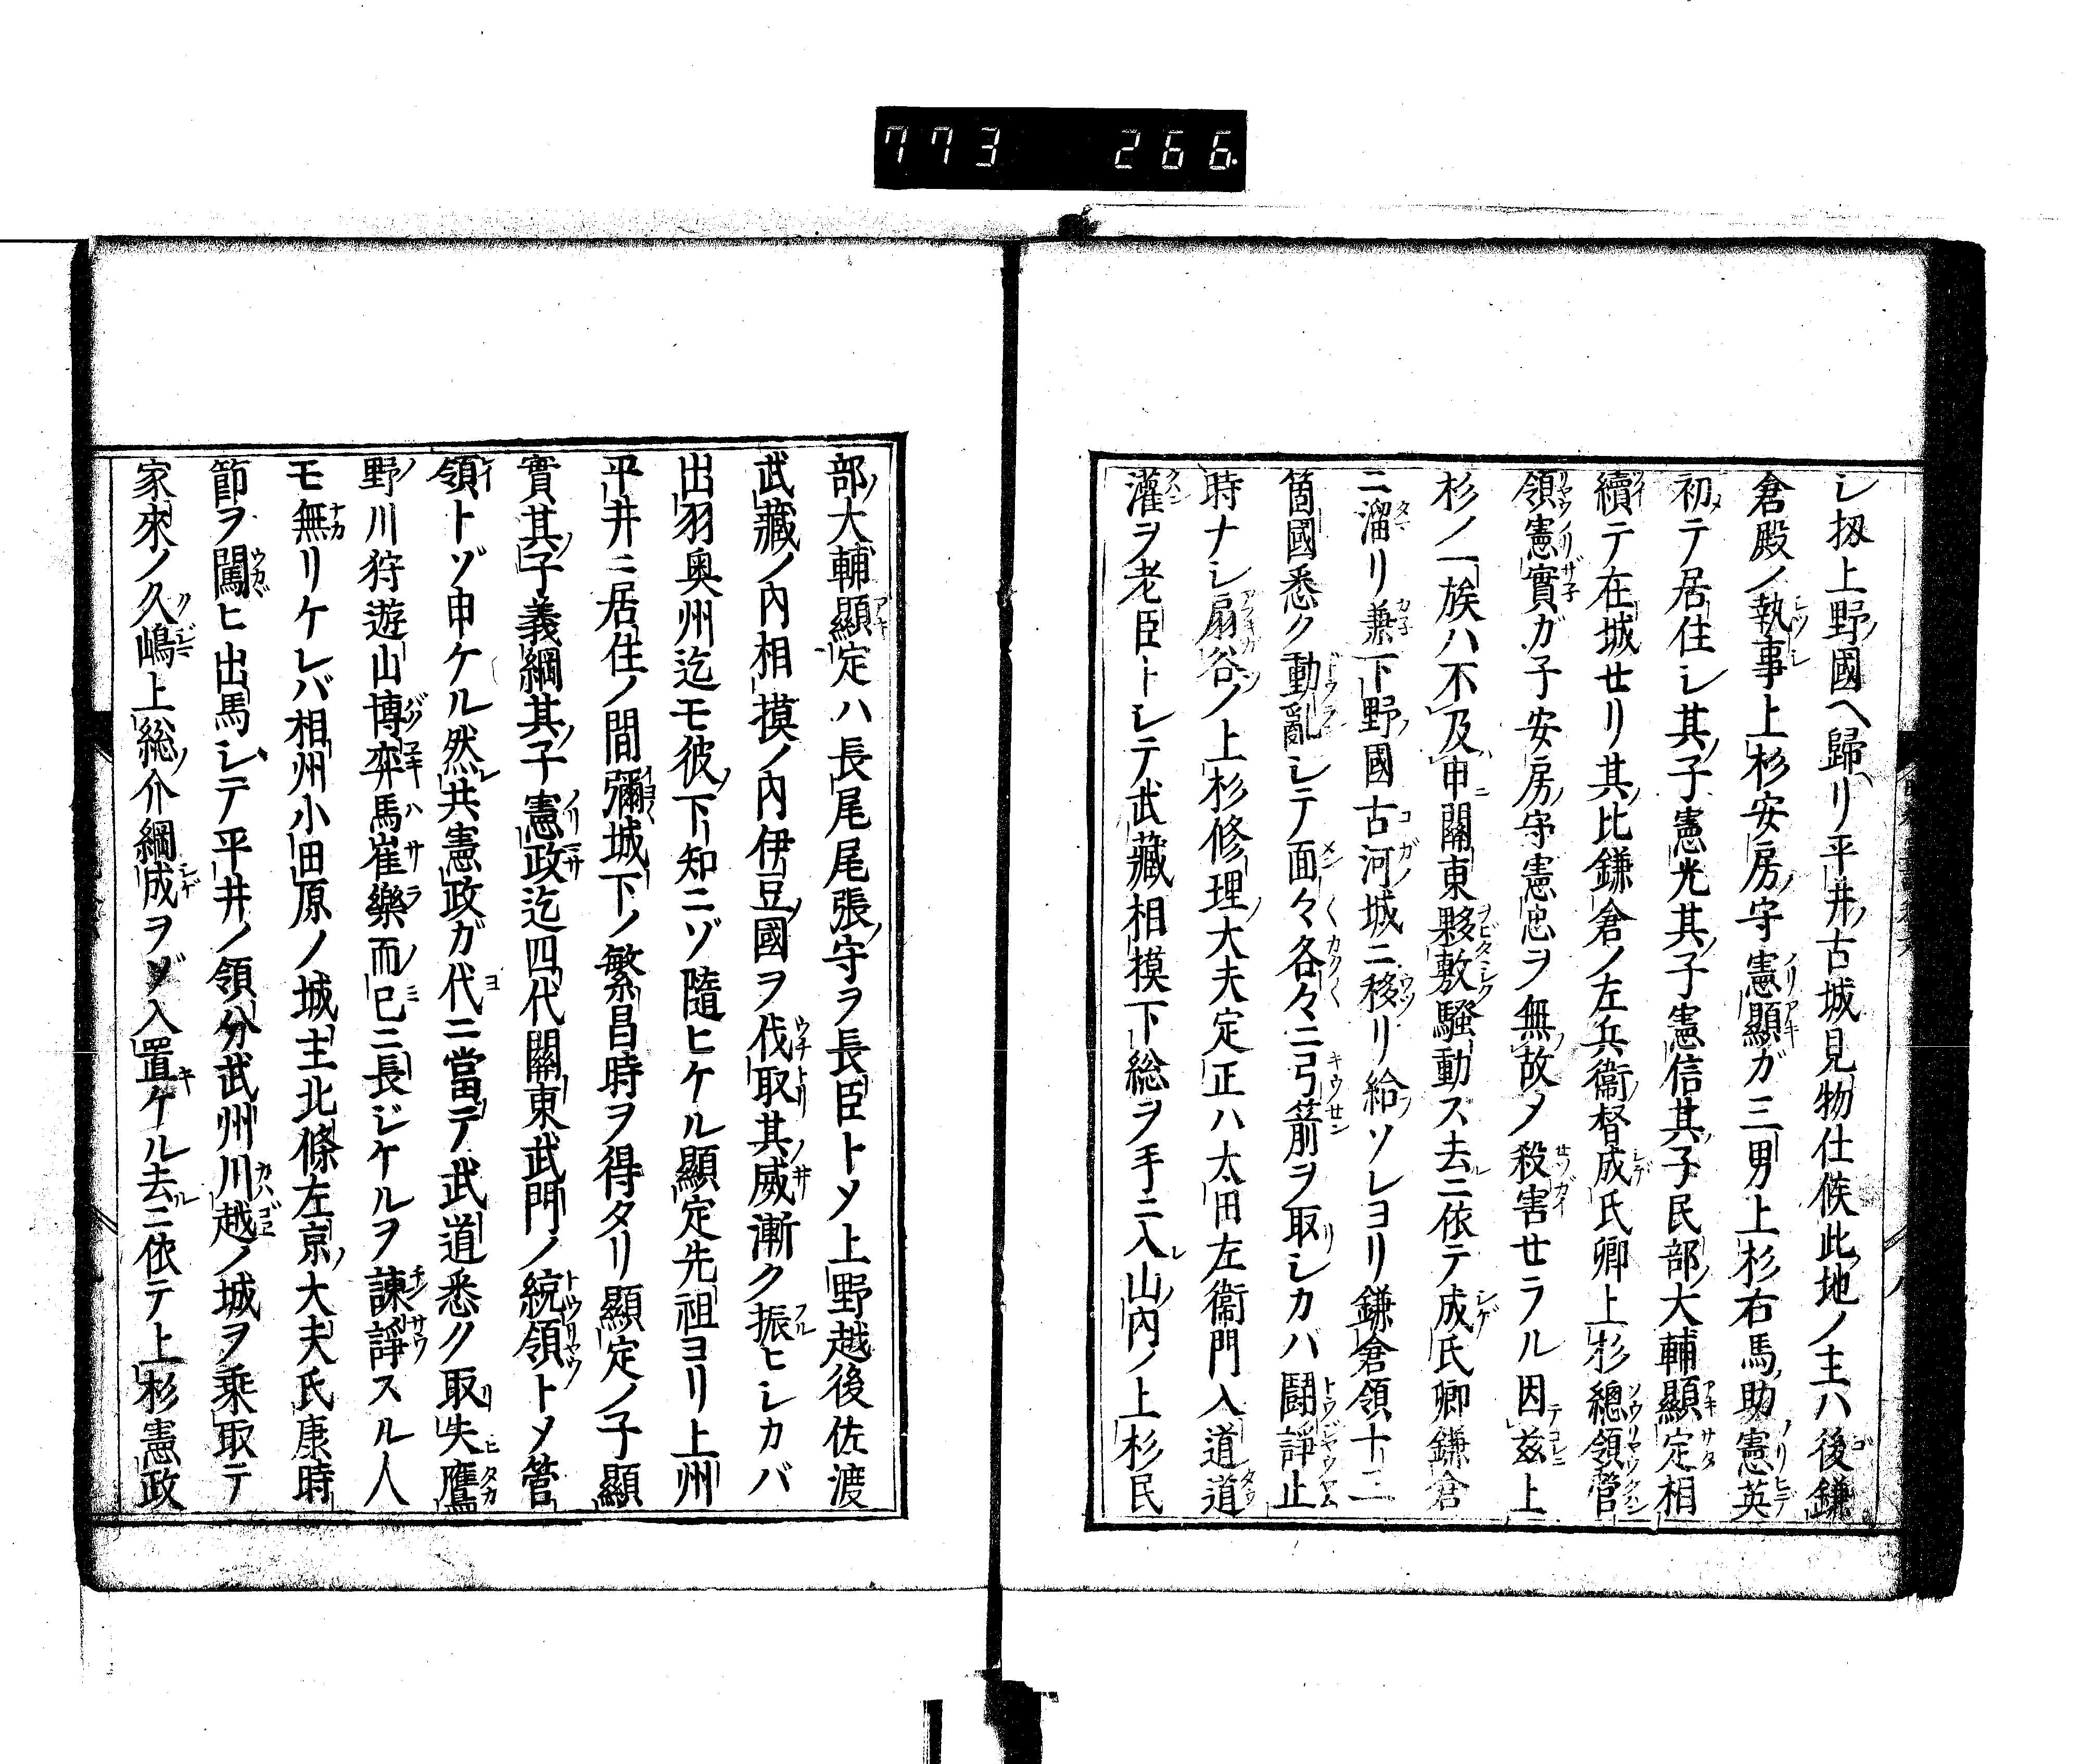 773 266.
シ扨上野國ヘ歸リ平井古城見物仕候此地ノ主ハ後鎌
倉殿ノ執事上杉安房守憲顯ガ三男上杉右馬助憲英
初テ居住シ其子憲光其子憲信其子民部大輔顯定相
續テ在城セリ其比鎌倉ノ左兵衞督成氏卿上杉總領管
領憲實ガ子安房守憲忠ヲ無故乄殺害セラル因茲上
杉ノ一族ハ不及申關東夥敷騷動ス去ニ依テ成氏卿鎌倉
ニ溜リ兼下野國古河城ニ移リ給ソレヨリ鎌倉領十二
箇國悉ク動亂シテ面々各々ニ弓箭ヲ取シカバ鬪諍止
時ナシ扇谷ノ上杉修理大夫定正ハ太田左衞門入道道
灌ヲ老臣トシテ武藏相摸下総ヲ手ニ入山內ノ上杉民
部大輔顯定ハ長尾尾張守ヲ長臣ト乄上野越後佐渡
武藏ノ內相摸ノ內伊豆國ヲ伐取其威漸ク振ヒシカバ
出羽奥州迄モ彼下知ニゾ隨ヒケル顯定先祖ヨリ上州
平井ニ居住ノ間彌城下ノ繁昌時ヲ得タリ顯定ノ子顯
實其子義綱其子憲政迄四代關東武門ノ統領ト乄管
領トゾ申ケル然共憲政ガ代ニ當テ武道悉ク取失鷹
野川狩遊山博奕馬崔樂而已ニ長ジケルヲ諫諍スル人
モ無リケレバ相州小田原ノ城主北條左京大夫氏康時
節ヲ闖ヒ出馬シテ平井ノ領分武州川越ノ城ヲ乗取テ
家來ノ久嶋上総介綱成ヲゾ入置ケル去ニ依テ上杉憲政